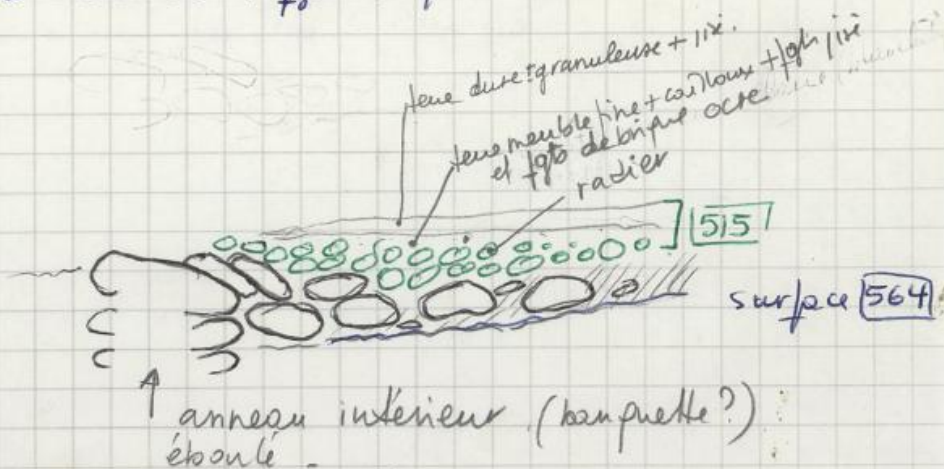 terre dure + granuleuse + pisé.
terre meuble fine + cailloux + fgts pisé
et fgts de brique ocre
radier
515
surface 564
anneau intérieur (banquette?)
éboulé.